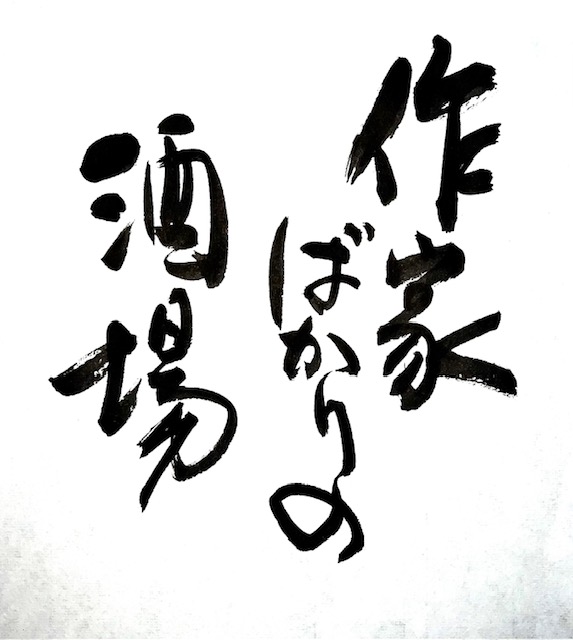 作家
ばかりの
酒場